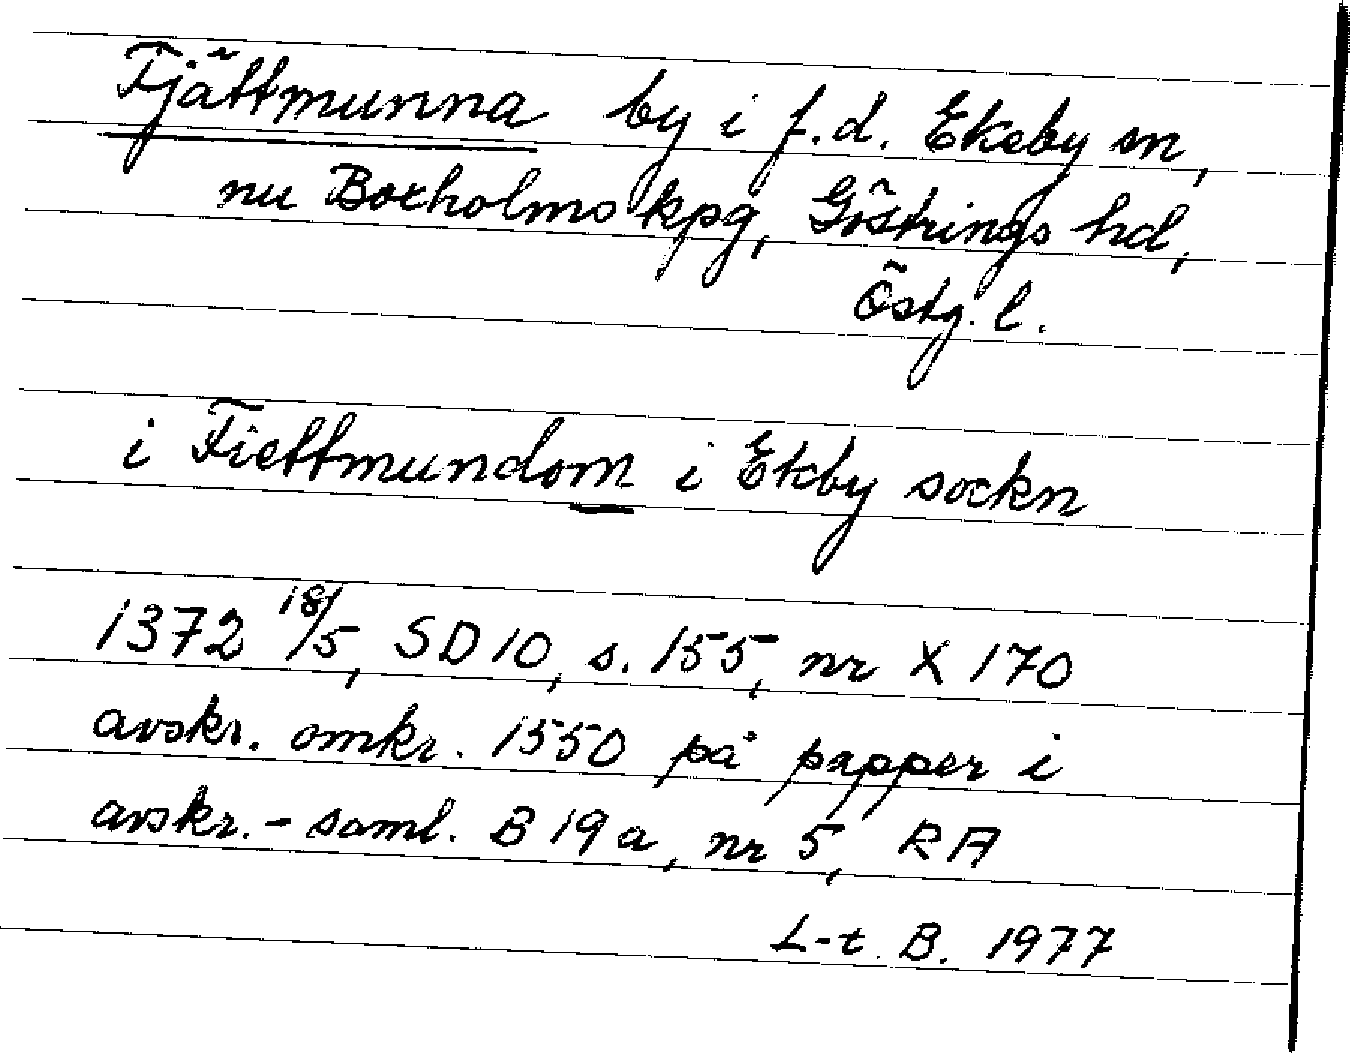 Fjättmunna by i f.d. Ekeby sn,
nu Boxholms kpg, Göstrings hd,
Östg. l.
i Fiettmundom i Ekby sockn
1372 18/5, SD 10, s. 155, nr X 170
avskr. omkr. 1550 på papper i
avskr.-saml. B 19 a, nr 5, RA
L-t. B. 1977